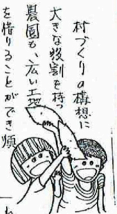 村づくりの構想に
大きな役割を持つ
農園も、広い工場
を借りることができ順